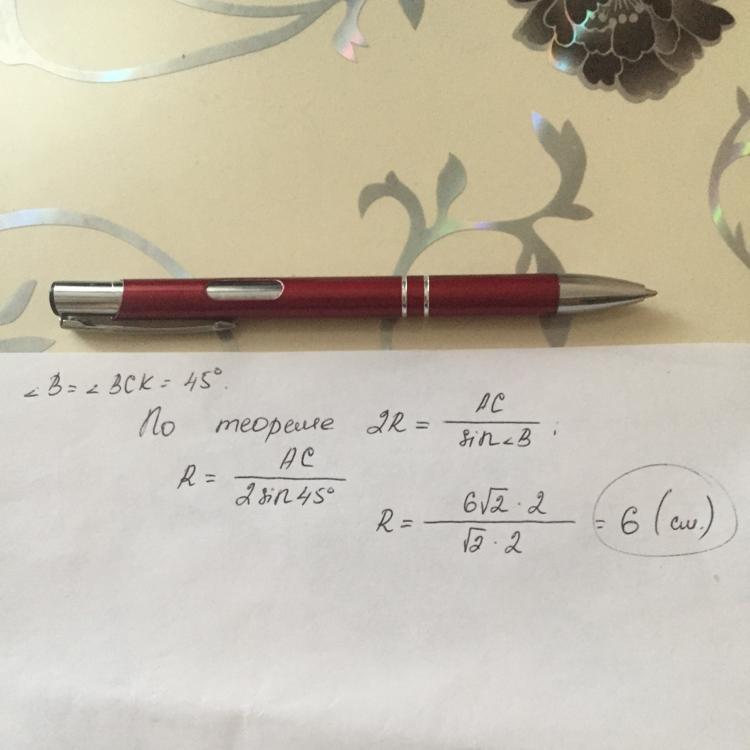 ∠B = ∠BCK = 45°.
По теореме 2R = AC / sin∠B ;
R = AC / 2 sin 45°
R = 6√2 · 2 / √2 · 2 = 6 (см.)